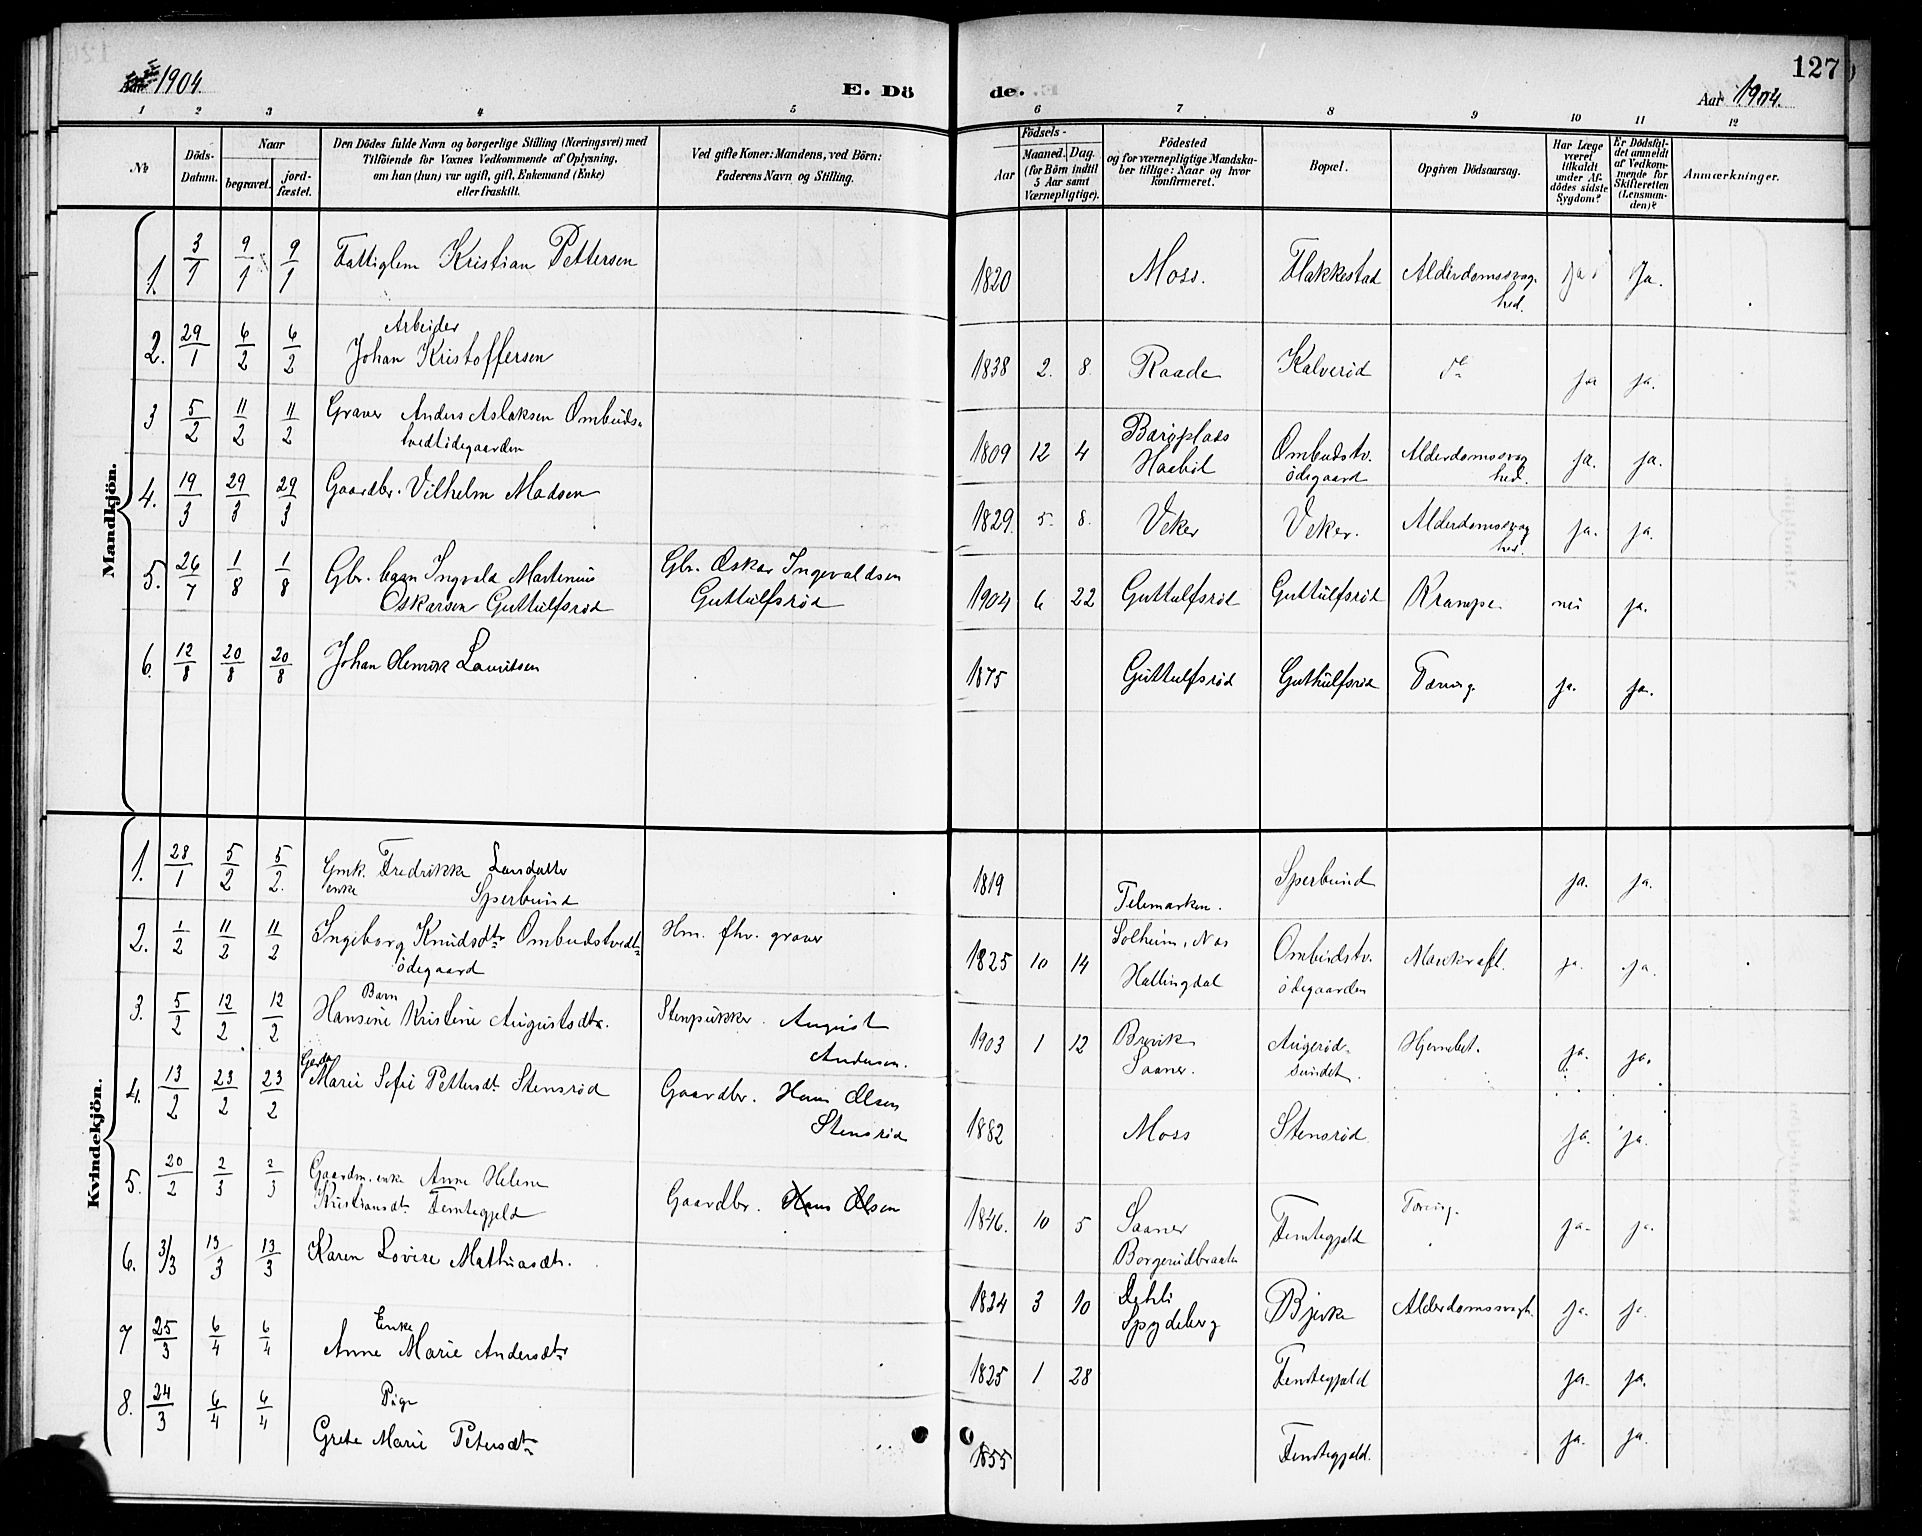 1904.
E. Dö
de.
127
Aar 1904.
1 2 3 4 5 6 7 8 9 10 11 12
No
Döds-Datum.
Naar
begravet.
jord-fæstet.
Den Dödes fulde Navn og borgerlige Stilling (Næringsvei) med
Tilföiende for Voxnes Vedkommende af Oplysning,
om han (hun) var ugift, gift, Enkemand (Enke)
eller fraskilt.
Ved gifte Koner: Mandens, ved Börn:
Faderens Navn og Stilling.
Födsels-
Aar
Maaned. Dag.
(for Börn indtil
5 Aar samt
Værnepligtige).
Födested
og for værnepligtige Mandska-
ber tillige: Naar og hvor
konfirmeret.
Bopæl.
Opgiven Dödsaarsag.
Har Læge
været
tilkaldt
under Af-
dödes sidste
Sygdom?
Er Dödsfal-
det anmeldt
af Vedkom-
mende for
Skifteretten
(Lensman-
den)?
Anmærkninger.
Mandkjön.
1. 3/1 9/1 9/1 Fattiglem Kristian Pettersen 1820 Moss. Flakkestad Alderdomssvag-
hed. Ja Ja.
2. 29/1 6/2 6/2 Arbeider
Johan Kristoffersen 1838 2. 8. Raade Kalverød do ja ja.
3 5/2 11/2 11/2 Graver Anders Aslaksen Ombuds-
tvedtødegaarden 1809 12 4 Barøplads
Haabøl Ombudstv.
ødegaard Alderdomssvag
hed. ja. ja.
4. 19/3 29/3 29/3 Gaardbr. Vilhelm Madsen 1829. 5. 8. Veker Veker. Alderdomssvag
hed. ja. ja.
5. 26/7 1/8 1/8 Gbr. barn Ingvald Martenius
Oskarsen Guttulfsrød Gbr. Oskar Ingevaldsen
Guttulfsrød 1904 6 22 Guttulfsrød Guttulfsrød Krampe. nei ja.
6. 12/8 20/8 20/8 Johan Henrik Lauritsen 1875 Guttulfsrød Guthulfsrød Tæring. ja. ja.
Kvindekjön.
1. 28/1 5/2 5/2. Gmk. Fredrikke
enke Sperbund 1819 Telemarken. Sperbund ja. ja.
2. 1/2 11/2 11/2 Ingeborg Knudsdtr Ombudstvedt-
ødegaard Hm. fhv. graver 1825 10 14 Solheim, Nas
Hallingdal Ombudstv.
ødegaarden Mavekræft. ja. ja.
3. 5/2 12/2 12/2 Barn
Hansine Kristine Augustsdtr. Stenpukker. August
Andersen. 1903 1 12 Brevik
Saaner. Augerød-
sundet. Hjernebet. ja. ja.
4. 13/2 23/2 23/2 Gjerda
Marie Sofie Pettersdt. Stensrød Gaardbr. Hans Olsen
Stensrød 1882 Moss Stensrød. ja. ja.
5. 20/2 2/3 2/3 Gaardm. enke Anne Helene
Kristiansdt. Femtegjeld Gaardbr. Hans Olsen 1846. 10 5 Saaner
Borgerudbraaten Femtegjeld Tæring. ja. ja.
6. 3/3 13/3 13/3 Karen Lovise Mathiasdtr. 1824 3 10 Dehli
Spydeberg Bjerke Alderdomssvagh. ja. ja.
7 25/3 6/4 6/4 Enke
Anne Marie Andersdtr 1825 1 28 Femtegjeld ja. ja.
8. 24/3 6/4 6/4 Pige
Grete Marie Petersdtr 1855 Femtegjeld. ja. ja.